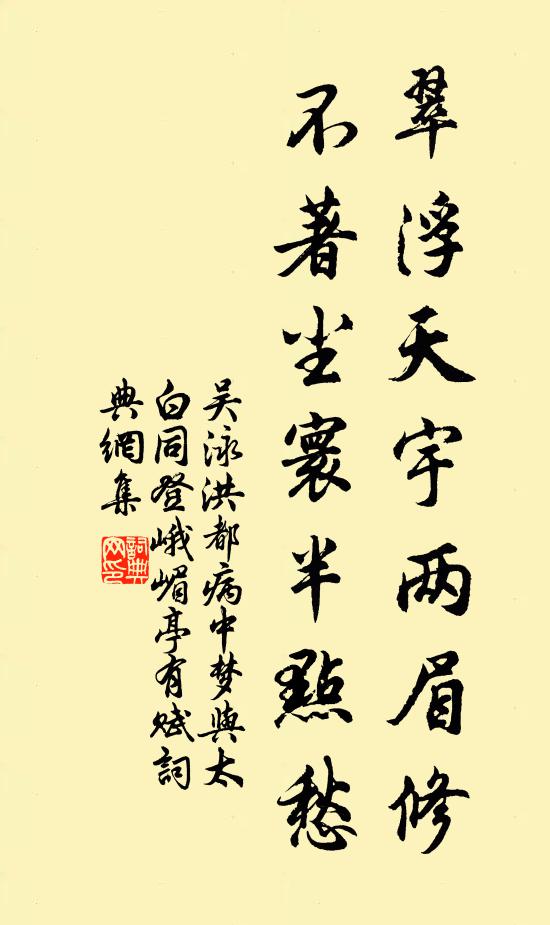 翠浮天宇两眉修
不著尘寰半點愁
吴泳洪都病中梦與太
白同登峨嵋亭有赋詞
典網集
詞典
网印